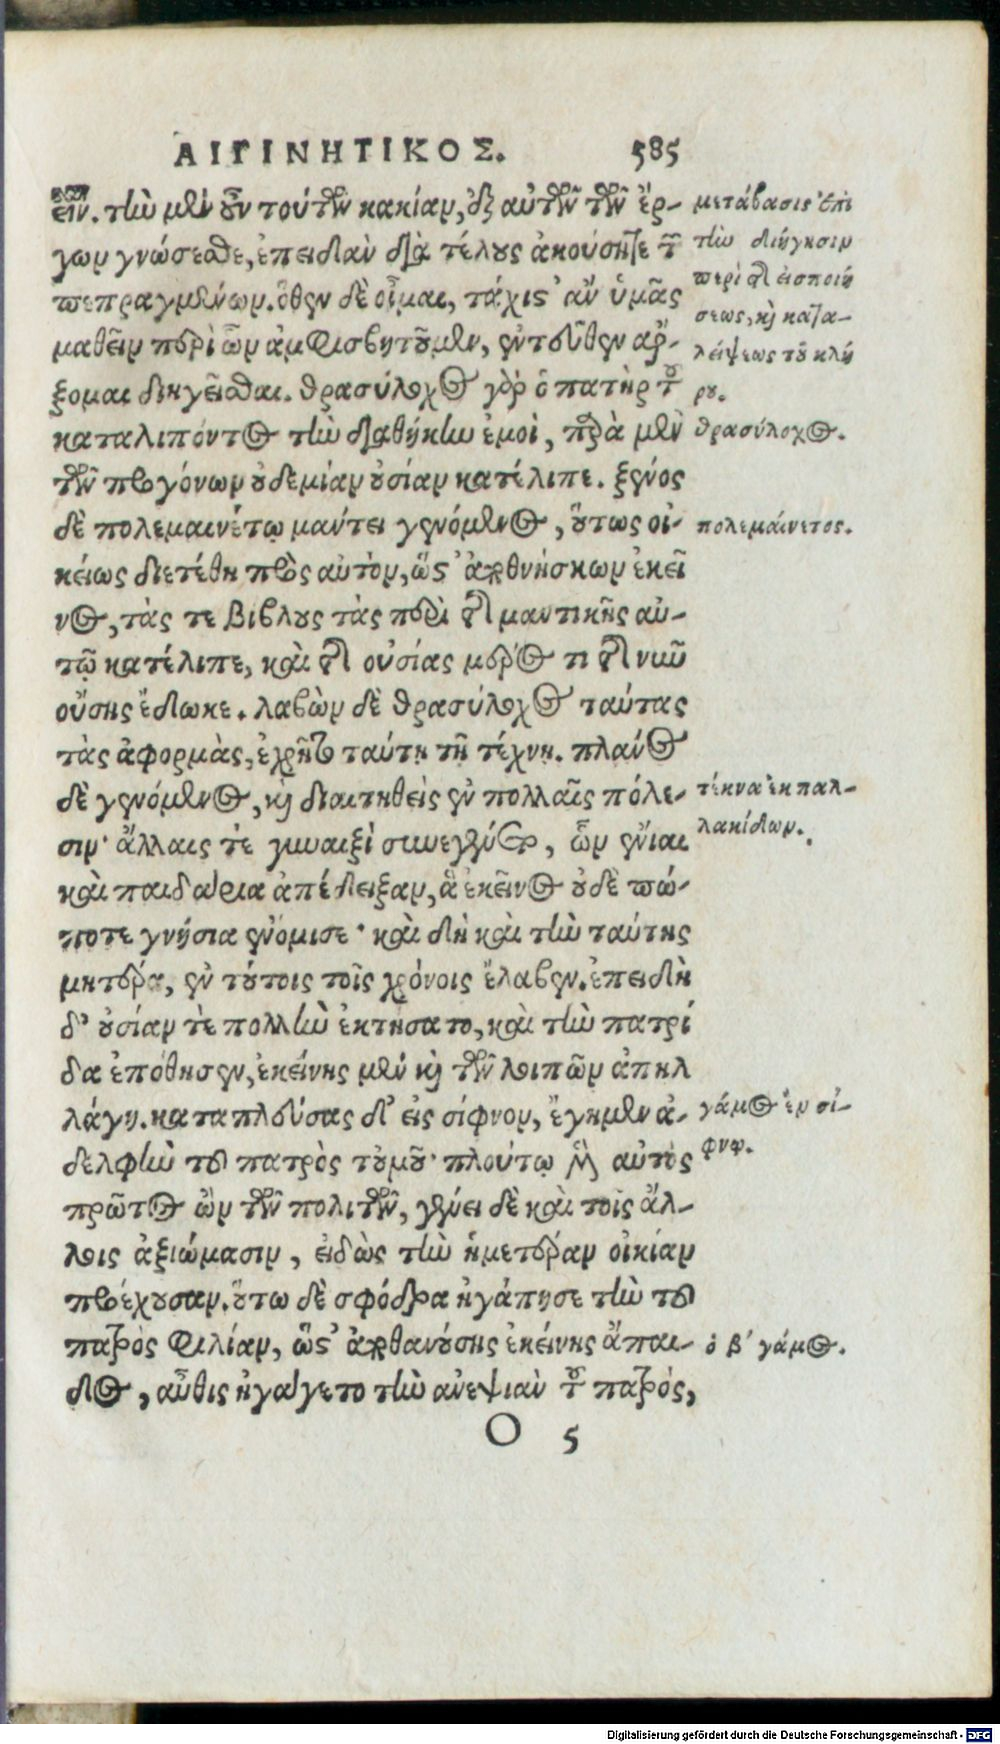 ΑΙΓΙΝΗΤΙΚΟΣ. 585
εῖν. τὴν μὲν οὖν τούτων κακίαν, ἐξ αὐτῶν τῶν ἔρ-
γων γνώσεσθε, ἐπειδὰν διὰ τέλους ἀκούσητε τῶν
πεπραγμένων. ὅθεν δὲ οἶμαι, τάχιστ' ἂν ὑμᾶς
μαθεῖν περὶ ὧν ἀμφισβητοῦμεν, ἐντεῦθεν ἄρ-
ξομαι διηγεῖσθαι. θρασύλοχος γὰρ ὁ πατὴρ τοῦ
καταλιπόντος τὴν διαθήκην ἐμοὶ, παρὰ μὲν
τῶν προγόνων οὐδεμίαν οὐσίαν κατέλιπε. ξένος
δὲ πολεμαινέτῳ μάντει γενόμενος, οὕτως οἰ-
κείως διετέθη πρὸς αὐτὸν, ὥστ' ἀποθνήσκων ἐκεῖ
νος, τάς τε βίβλους τὰς περὶ τῆς μαντικῆς αὐ-
τῷ κατέλιπε, καὶ τῆς οὐσίας μέρος τι τῆς νῦν
οὔσης ἔδωκε. λαβὼν δὲ θρασύλοχος ταύτας
τὰς ἀφορμὰς, ἐχρῆτο ταύτῃ τῇ τέχνῃ. πλάνος
δὲ γενόμενος, καὶ διαιτηθεὶς ἐν πολλαῖς πόλε-
σιν· ἄλλαις τὲ γυναιξὶ συνεγένετο, ὧν ἔνιαι
καὶ παιδάρια ἀπέδειξαν, ἃ ἐκεῖνος οὐδὲ πώ-
ποτε γνήσια ἐνόμισε· καὶ δὴ καὶ τὴν ταύτης
μητέρα, ἐν τούτοις τοῖς χρόνοις ἔλαβεν. ἐπειδὴ
δ' οὐσίαν τὲ πολλὴν ἐκτήσατο, καὶ τὴν πατρί
δα ἐπόθησεν, ἐκείνης μὲν καὶ τῶν λοιπῶν ἀπηλ
λάγη. καταπλεύσας δ' εἰς σίφνον, ἔγημεν ἀ-
δελφὴν τοῦ πατρὸς τοὐμοῦ· πλούτῳ μὲν αὐτὸς
πρῶτος ὢν τῶν πολιτῶν, γένει δὲ καὶ τοῖς ἄλ-
λοις ἀξιώμασιν, εἰδὼς τὴν ἡμετέραν οἰκίαν
προέχουσαν. οὕτω δὲ σφόδρα ἠγάπησε τὴν τοῦ
πατρὸς φιλίαν, ὥστ' ἀποθανούσης ἐκείνης ἄπαι-
δος, αὖθις ἠγάγετο τὴν ἀνεψιὰν τοῦ πατρός,
O 5
μετάβασις ἐπὶ
τὴν διήγησιν
περὶ τῆς εἰσποιή
σεως, καὶ κατα-
λείψεως τοῦ κλή
ρου.
θρασύλοχος.
πολεμαίνετος.
τέκνα ἐκ παλ-
λακίδων.
γάμος ἐν σί-
φνῳ.
ὁ β' γάμος.
Digitalisierung gefördert durch die Deutsche Forschungsgemeinschaft - DFG